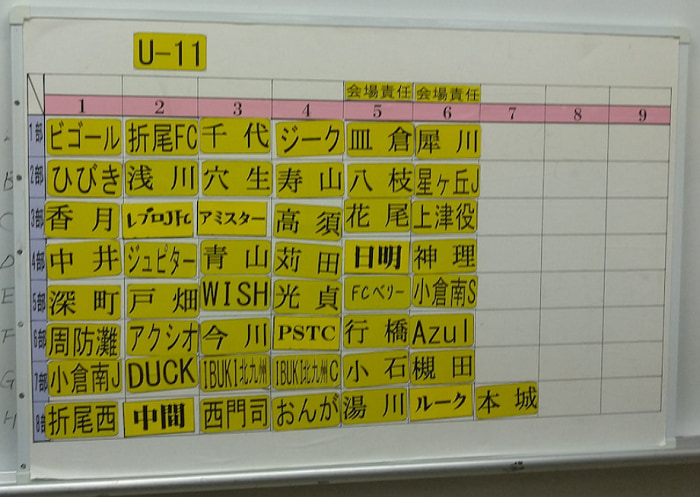 U-11
会場責任 会場責任
1 2 3 4 5 6 7 8 9
1部 ビゴール 折尾FC 千代 ジーク 皿倉 犀川
2部 ひびき 浅川 穴生 寿山 八枝 星ヶ丘J
3部 香月 レプロJFc アミスター 高須 花尾 上津役
4部 中井 ジュピター 青山 苅田 日明 神理
5部 深町 戸畑 WISH 光貞 FCベリー 小倉南S
6部 周防灘 アクシオ 今川 PSTC 行橋 Azul
7部 小倉南J DUCK IBUKI北九州 IBUKI北九州C 小石 槻田
8部 折尾西 中間 西門司 おんが 湯川 ルーク 本城
B
C
D
E
F
G
H